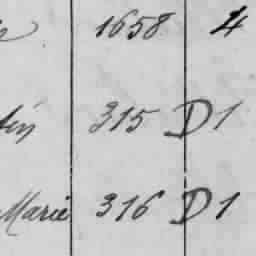 1658 4
tin 315 D 1
Marie 316 D 1